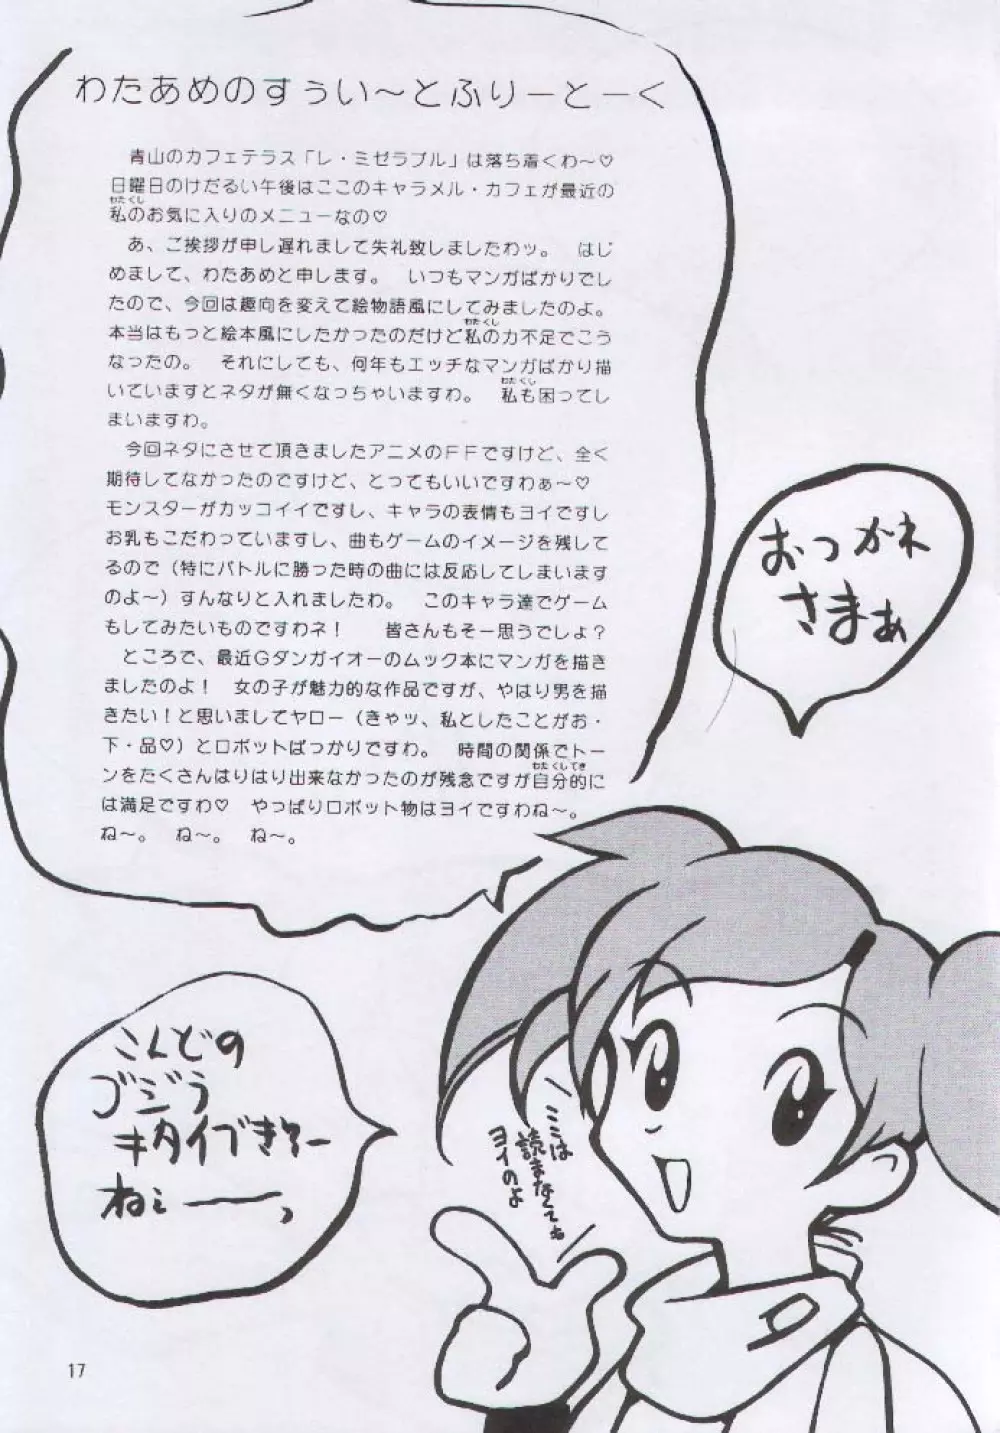 わたあめのすぅい〜とふりーとーく
青山のカフェテラス「レ・ミゼラブル」は落ち着くわ〜♡
日曜日のけだるい午後はここのキャラメル・カフェが最近の
わたくし
私のお気に入りのメニューなの♡
あ、ご挨拶が申し遅れまして失礼致しましたわッ。 はじ
めまして、わたあめと申します。 いつもマンガばかりでし
たので、今回は趣向を変えて絵物語風にしてみましたのよ。
わたくし
本当はもっと絵本風にしたかったのだけど私の力不足でこう
なったの。 それにしても、何年もエッチなマンガばかり描
わたくし
いていますとネタが無くなっちゃいますわ。 私も困ってし
まいますわ。
今回ネタにさせて頂きましたアニメのＦＦですけど、全く
期待してなかったのですけど、とってもいいですわぁ〜♡
モンスターがカッコイイですし、キャラの表情もヨイですし
お乳もこだわっていますし、曲もゲームのイメージを残して
るので（特にバトルに勝った時の曲には反応してしまいます
のよ〜）すんなりと入れましたわ。 このキャラ達でゲーム
もしてみたいものですわネ！ 皆さんもそー思うでしょ？
ところで、最近Ｇダンガイオーのムック本にマンガを描き
ましたのよ！ 女の子が魅力的な作品ですが、やはり男を描
きたい！と思いましてヤロー（きゃッ、私としたことがお・
下・品♡）とロボットばっかりですわ。 時間の関係でトー
わたくしてき
ンをたくさんはりはり出来なかったのが残念ですが自分的に
は満足ですわ♡ やっぱりロボット物はヨイですわね〜。
ね〜。 ね〜。 ね〜。
おつかれ
さまぁ
こんどの
ゴジラ
キタイできそー
ねぇーーっ
ミミは
読まなくても
ヨイのよ
17